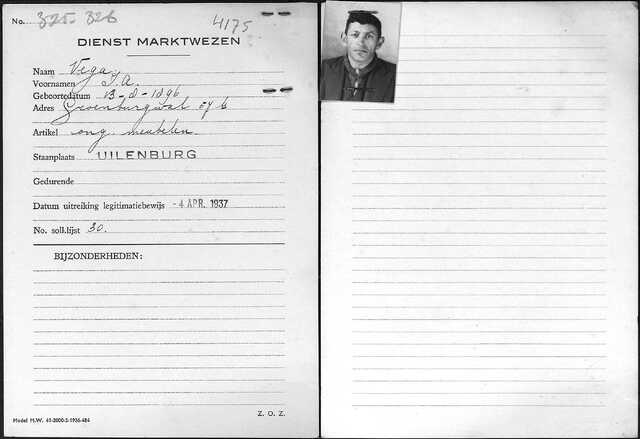 No. 325-326 4175
DIENST MARKTWEZEN
Naam Vega
Voornamen J.A.
Geboortedatum 13-8-1896
Adres
Artikel ong. meubelen.
Staanplaats UILENBURG
Gedurende
Datum uitreiking legitimatiebewijs -4 APR. 1937
No. soll.lijst 30.
BIJZONDERHEDEN:
Model M.W. 41-2000-3-1936-484
Z. O. Z.